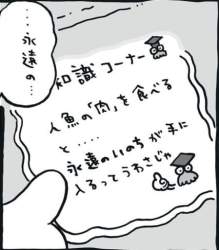 知識コーナー
人魚の「肉」を食べる
と‥‥
永遠のいのちが手に
入るってうわさじゃ
‥‥永遠の‥